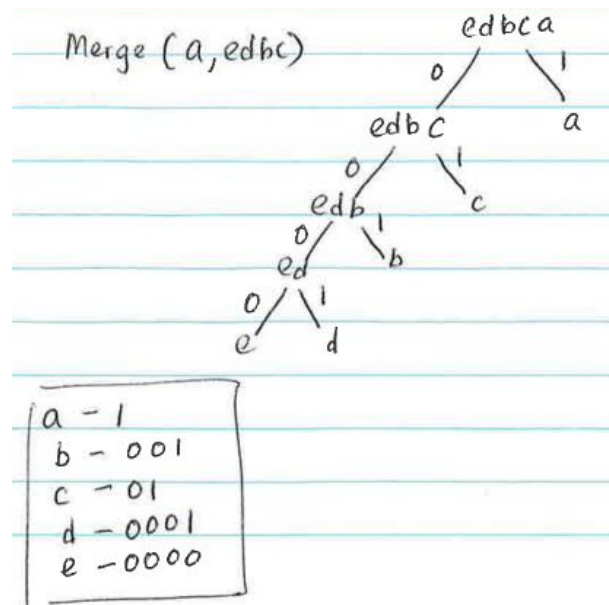 Merge (a, edbc)
edbca
0 1
edbc a
0 1
edb c
0 1
ed b
0 1
e d
a - 1
b - 001
c - 01
d - 0001
e - 0000